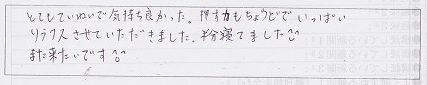 とてもていねいで気持ち良かった。押す力もちょうどで いっぱい
リラクス させていただきました。半分寝てました^^
また来たいです^^